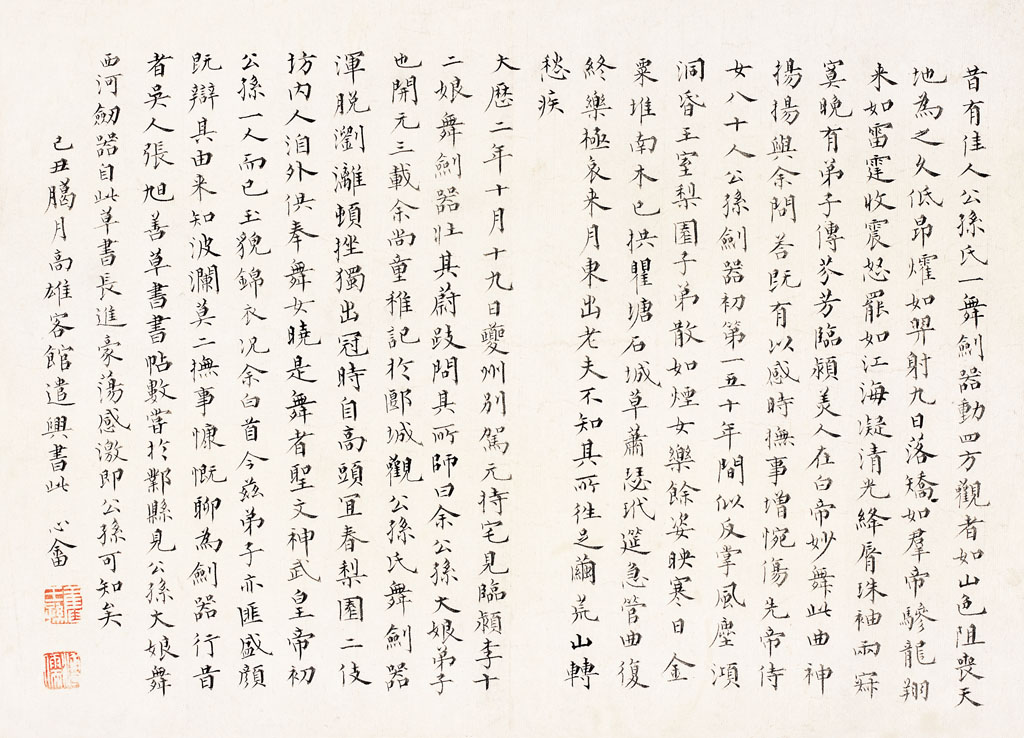 昔有佳人公孫氏一舞劍器動四方觀者如山色阻喪天
地為之久低昂㸌如羿射九日落矯如羣帝驂龍翔
来如雷霆收震怒罷如江海凝清光絳脣珠袖兩寂
寞晚有弟子傳芬芳臨潁美人在白帝妙舞此曲神
揚揚與余問荅既有以感時撫事增惋傷先帝侍
女八十人公孫劍器初第一五十年間似反掌風塵澒
洞昏王室梨園子弟散如煙女樂餘姿映寒日金
粟堆南木已拱瞿塘石城草蕭瑟玳筵急管曲復
終樂極哀来月東出老夫不知其所往足繭荒山轉
愁疾
大歷二年十月十九日夔州別駕元持宅見臨潁李十
二娘舞劍器壯其蔚跂問其所師曰余公孫大娘弟子
也開元三載余尚童稚記於郾城觀公孫氏舞劍器
渾脫瀏漓頓挫獨出冠時自高頭宜春梨園二伎
坊內人洎外供奉舞女曉是舞者聖文神武皇帝初
公孫一人而已玉貌錦衣況余白首今茲弟子亦匪盛顏
既辯其由来知波瀾莫二撫事慷慨聊為劍器行昔
者吳人張旭善草書書帖數嘗於鄴縣見公孫大娘舞
西河劒器自此草書長進豪蕩感激即公孫可知矣
己丑臈月高雄客館遣興書此 心畬